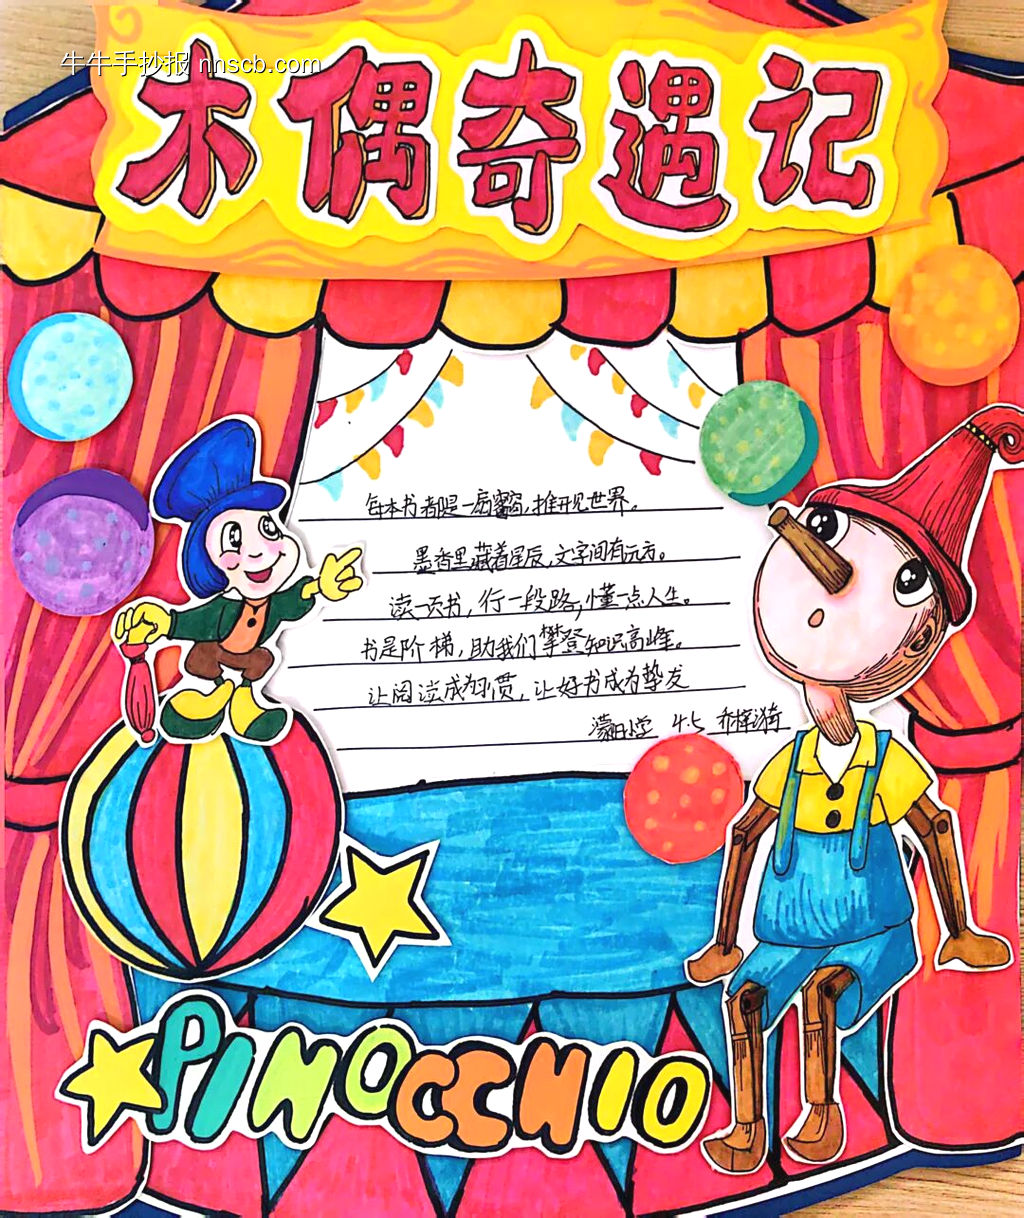 牛牛手抄报 nnscb.com
木偶奇遇记
每本书都是一扇窗,推开见世界。
墨香里藏着星辰,文字间有远方。
读一页书,行一段路,懂一点人生。
书是阶梯,助我们攀登知识高峰。
让阅读成为习惯,让好书成为挚友
小学 4.5 乔梓漪
PINOCCHIO